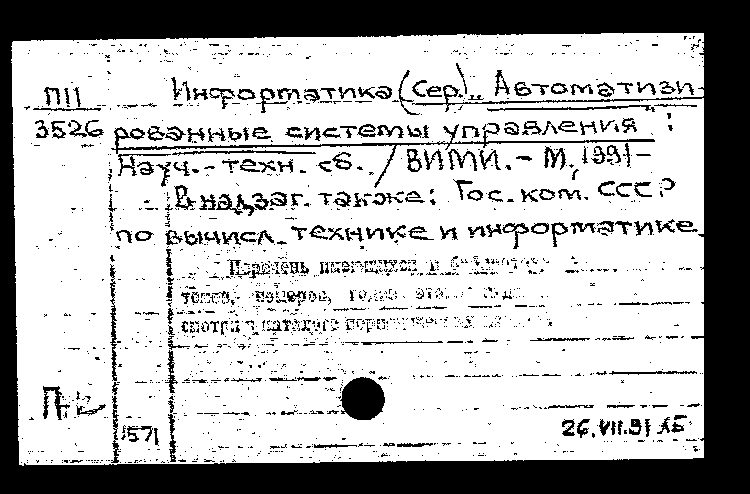 П11 Информатика (Сер.).. Автоматизи-
3526 рованные системы управления" :
Науч.-техн. сб. / ВИМИ. - М, 1991-
В надзаг. также: Гос. ком. СССР
по вычисл. технике и информатике.
Перечень имеющихся в
томов, номеров,
смотри в каталоге
П
1571
26.VII.91